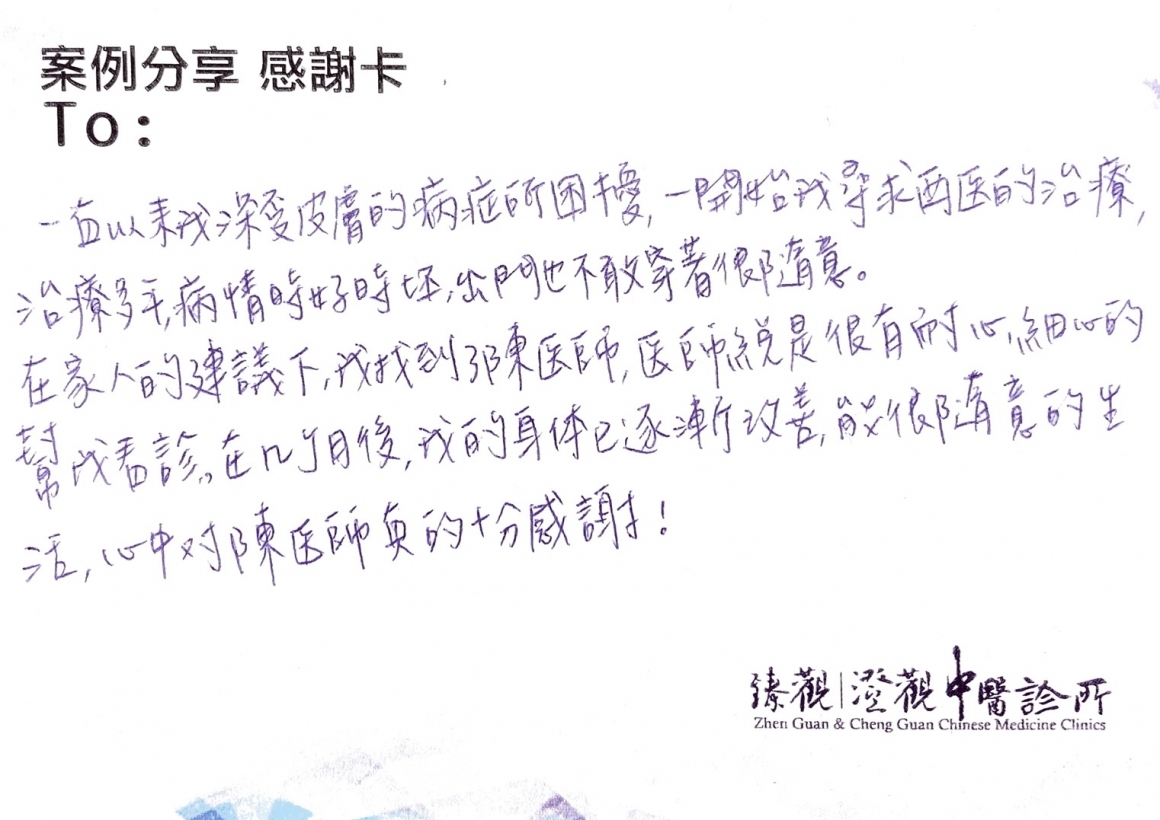 案例分享 感謝卡
To:
一直以來我深受皮膚的病症所困擾,一開始我尋求西医的治療,
治療多年,病情時好時坏,出門也不敢穿著很隨意。
在家人的建議下,我找到了陳医師,医師総是很有耐心,細心的
幫我看診。在几个月後,我的身体已逐漸改善,能很隨意的生
活,心中对陳医師真的十分感謝!
臻觀|澄觀中醫診所
Zhen Guan & Cheng Guan Chinese Medicine Clinics